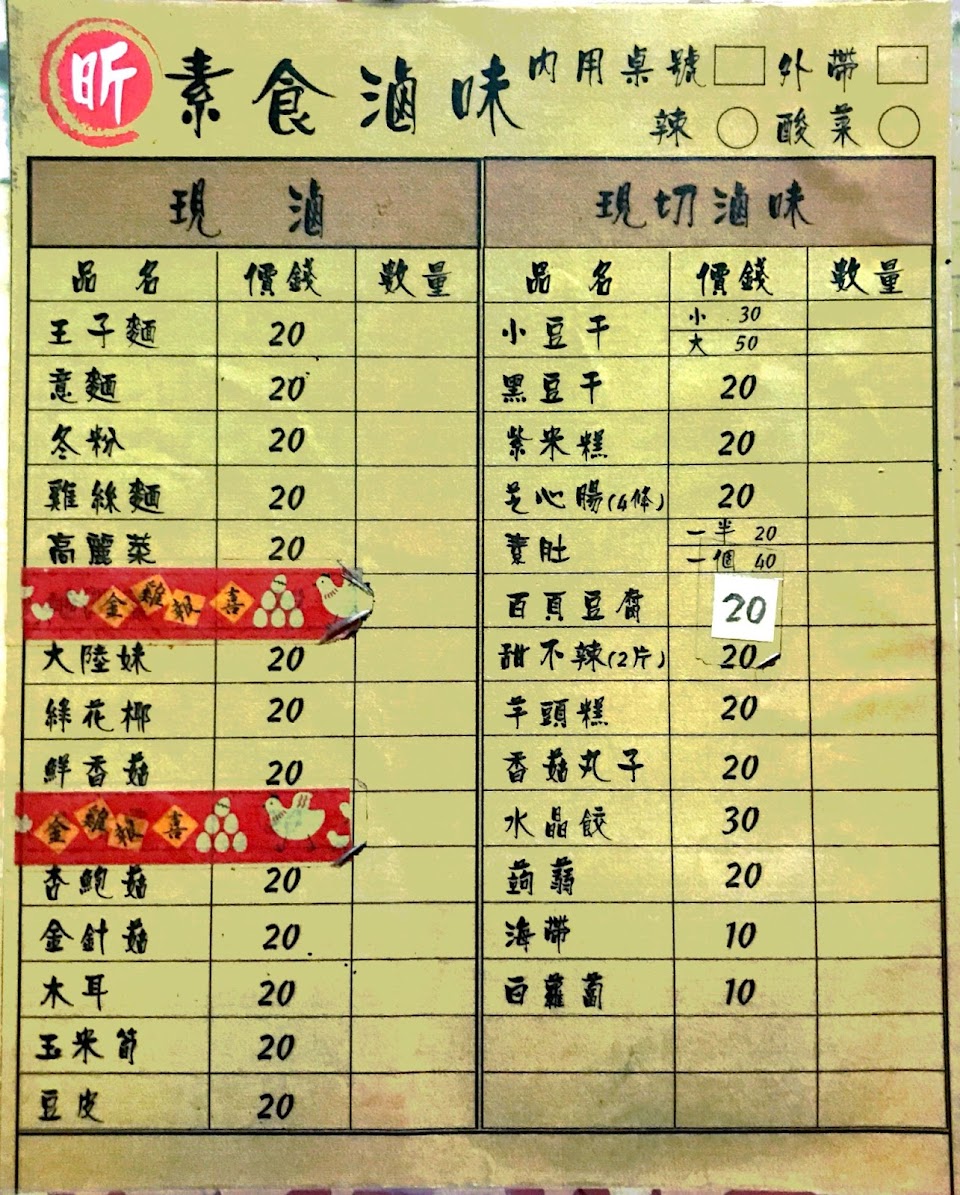 昕 素食滷味 內用桌號 外帶
辣 酸菜
現滷
品名 價錢 數量
王子麵 20
意麵 20
冬粉 20
雞絲麵 20
高麗菜 20
金雞報喜
大陸妹 20
綠花椰 20
鮮香菇 20
金雞報喜
杏鮑菇 20
金針菇 20
木耳 20
玉米筍 20
豆皮 20
現切滷味
品名 價錢 數量
小豆干 小 30
大 50
黑豆干 20
紫米糕 20
芝心腸(4條) 20
素肚 一半 20
一個 40
百頁豆腐 20
甜不辣(2片) 20
芋頭糕 20
香菇丸子 20
水晶餃 30
蒟蒻 20
海帶 10
白蘿蔔 10